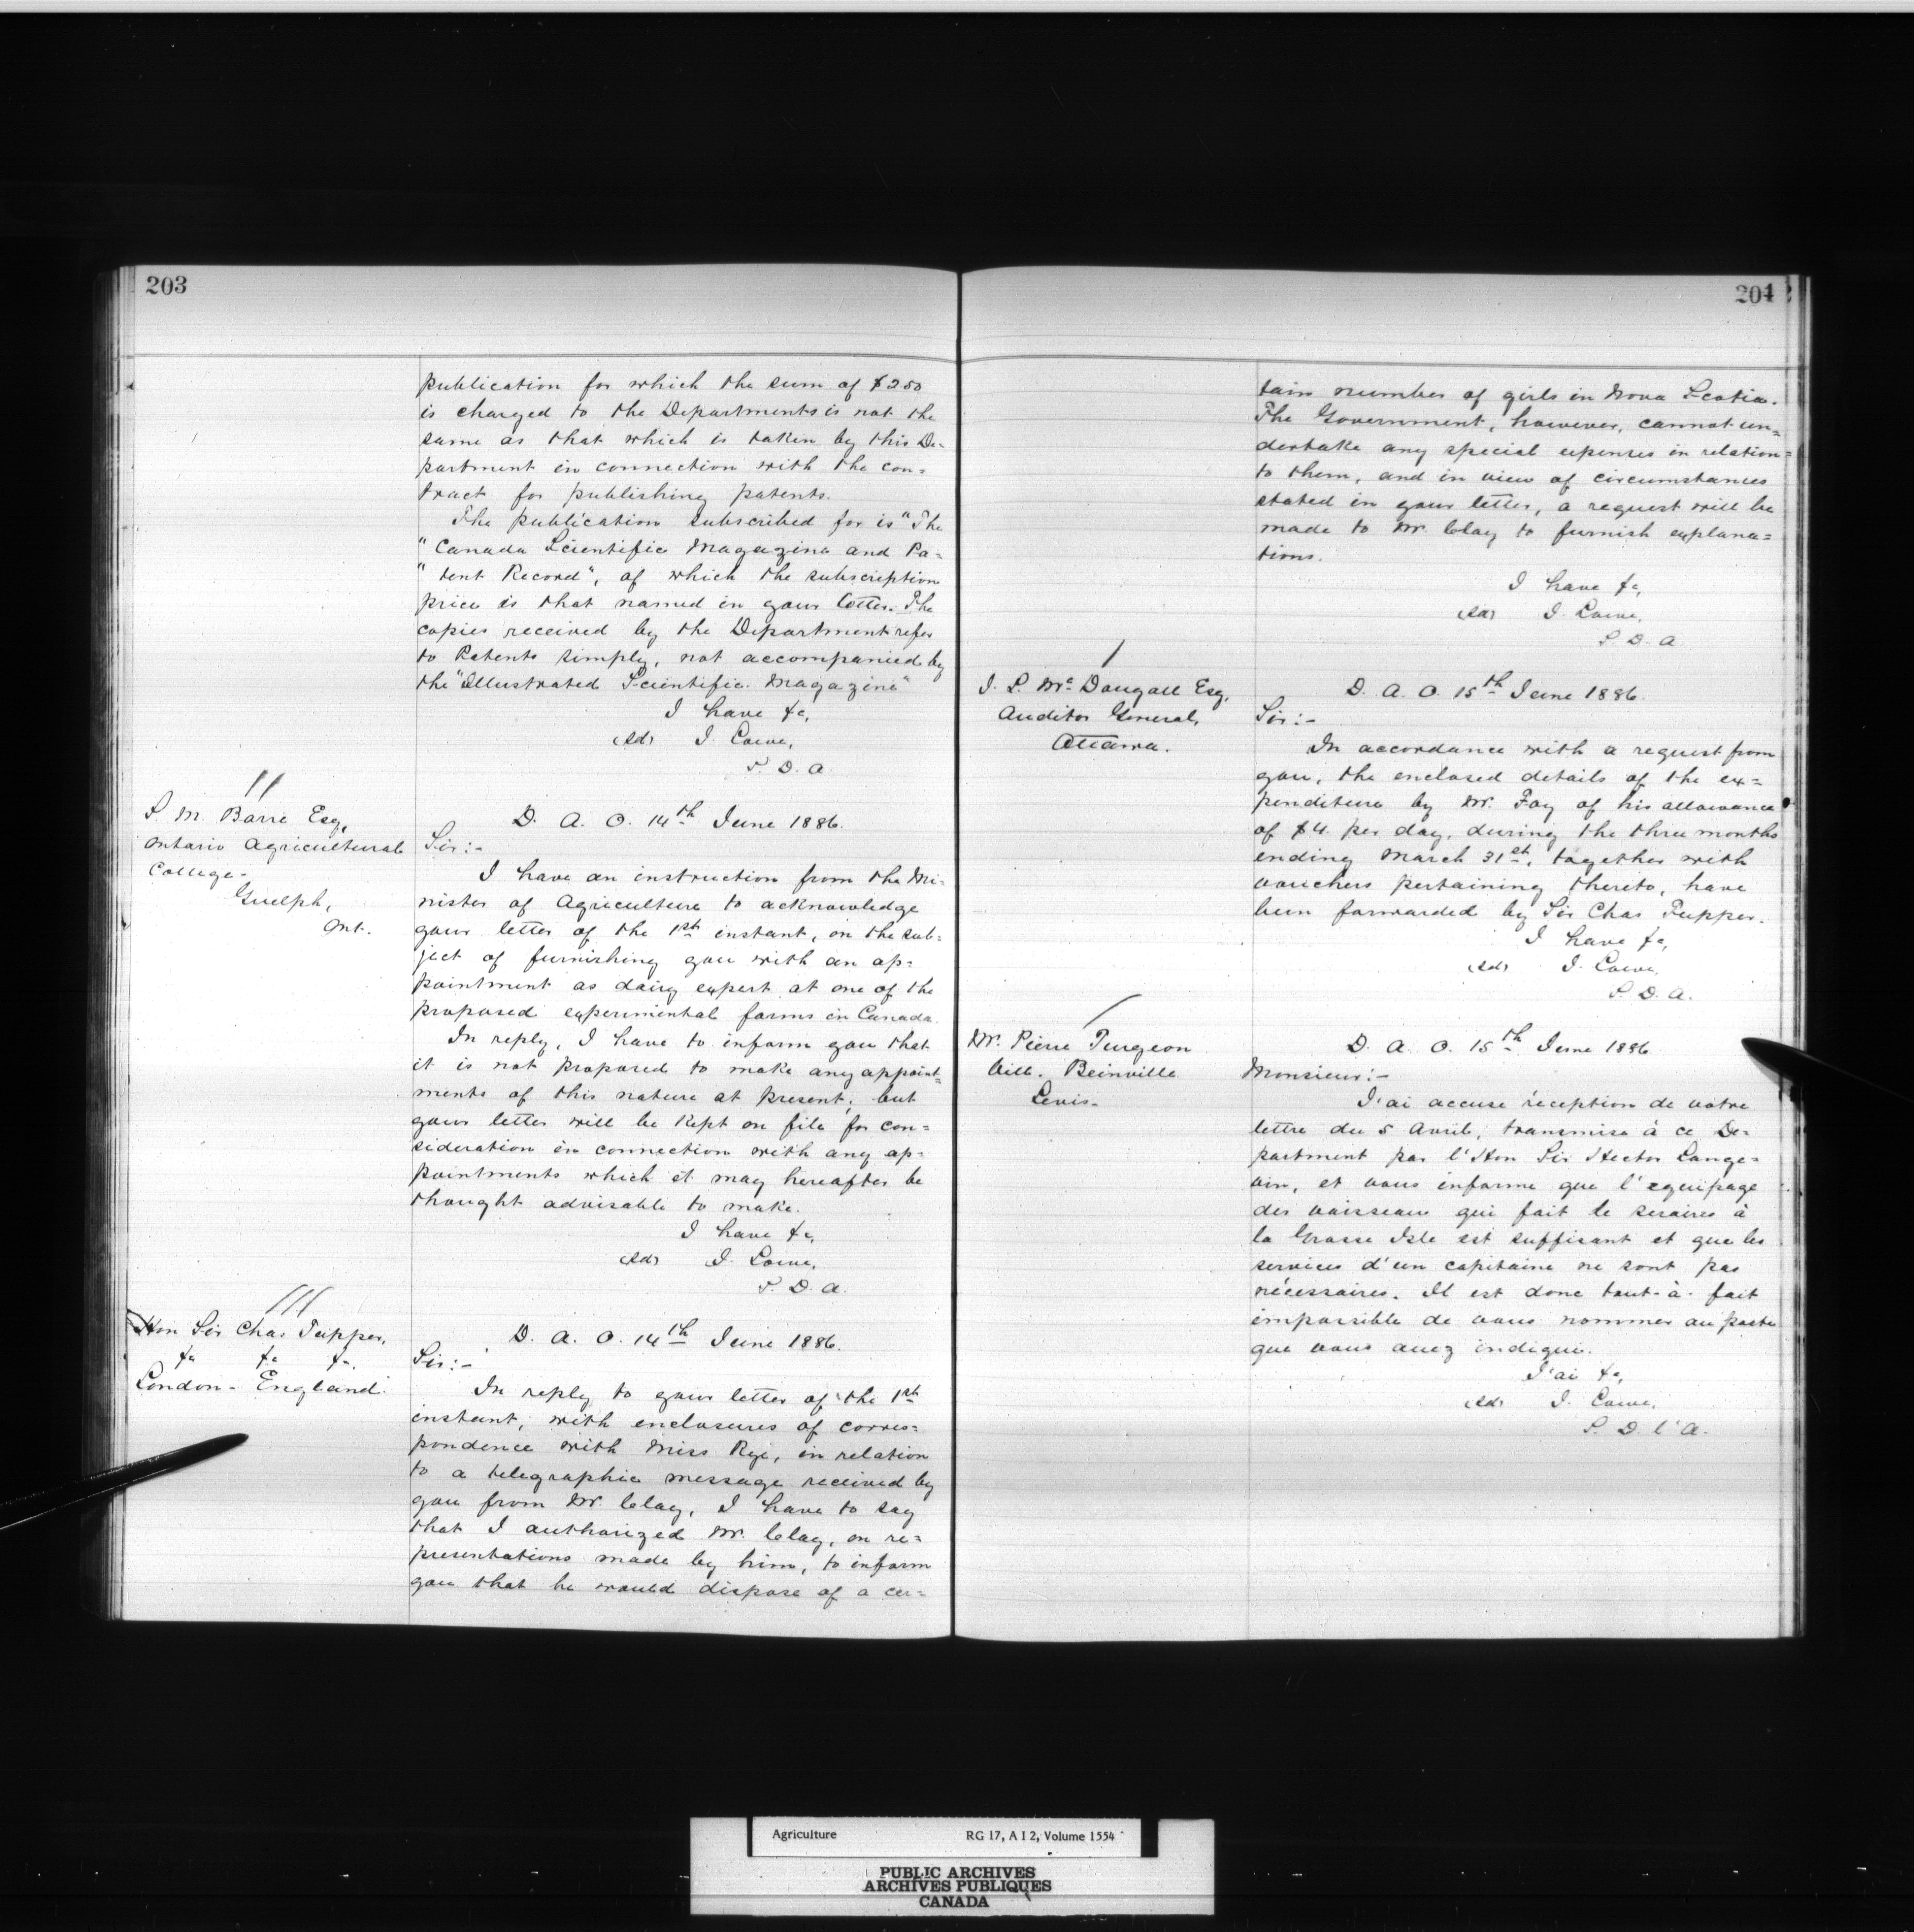 203
publication for which the sum of $250
is charged to the Departments is not the
same as that which is taken by this De=
partment in connection with the con=
tract for publishing patents.
The publication subscribed for is "The
"Canada Scientific Magazine and Pa=
"tent Record", of which the subscription
price is that named in your letter. The
copies received by the Department refer
to Patents simply, not accompanied by
the "Illustrated Scientific Magazine"
I have &c,
(Sd) J. Lowe,
S. D. A.
//
S. M. Barré Esq,
Ontario Agricultural
College-
Guelph,
Ont.
D. A. O. 14th June 1886.
Sir:-
I have an instruction from the Mi=
nister of Agriculture to acknowledge
your letter of the 1st instant, on the sub=
ject of furnishing you with an ap=
pointment as dairy expert at one of the
proposed experimental farms in Canada.
In reply, I have to inform you that
it is not proposed to make any appoint=
ments of this nature at present; but
your letter will be kept on file for con=
sideration in connection with any ap=
pointments which it may hereafter be
thought advisable to make.
I have &c,
(Sd) J. Lowe,
S. D. A.
///
Hon Sir Chas Tupper,
&c &c &c.
London- England.
D. A. O. 14th June 1886.
Sir:-
In reply to your letter of the 1st
instant, with enclosures of corres=
pondence with Miss Rye, in relation
to a telegraphic message received by
you from Mr. Clay, I have to say
that I authorized Mr. Clay, on re=
presentations made by him, to inform
you that he would dispose of a cer=
204
tain number of girls in Nova Scotia.
The Government, however, cannot un=
dertake any special expenses in relation=
to them, and in view of circumstances
stated in your letter, a request will be
made to Mr. Clay to furnish explana=
tions.
I have &c,
(Sd) J. Lowe,
S. D. A.
/
J. L. McDougall Esq,
Auditor General,
Ottawa.
D. A. O. 15th June 1886.
Sir:-
In accordance with a request from
you, the enclosed details of the ex=
penditure by Mr. Foy of his allowance
of $4. per day, during the three months
ending March 31st, together with
vouchers pertaining thereto, have
been forwarded by Sir Chas Tupper.
I have &c,
(Sd) J. Lowe,
S. D. A.
/
Dr. Pierre Turgeon
Vill. Beinville
Levis-
D. A. O. 15th June 1886
Monsieur:-
J'ai accuse réception de votre
lettre du 5 Avril, transmise à ce De=
partment par l'Hon Sir Hector Lange=
vin, et vous informe que l'equipage
des vaisseau qui fait le services à
la Grosse Isle est suffisant et que les
services d'un capitaine ne sont pas
nécessaires. Il est donc tout-à-fait
impossible de vous nommer au poste
que vous avez indiqué.
J'ai &c,
(Sd) J. Lowe,
S. D. l'A.
Agriculture RG 17, A I 2, Volume 1554
PUBLIC ARCHIVES
ARCHIVES PUBLIQUES
CANADA